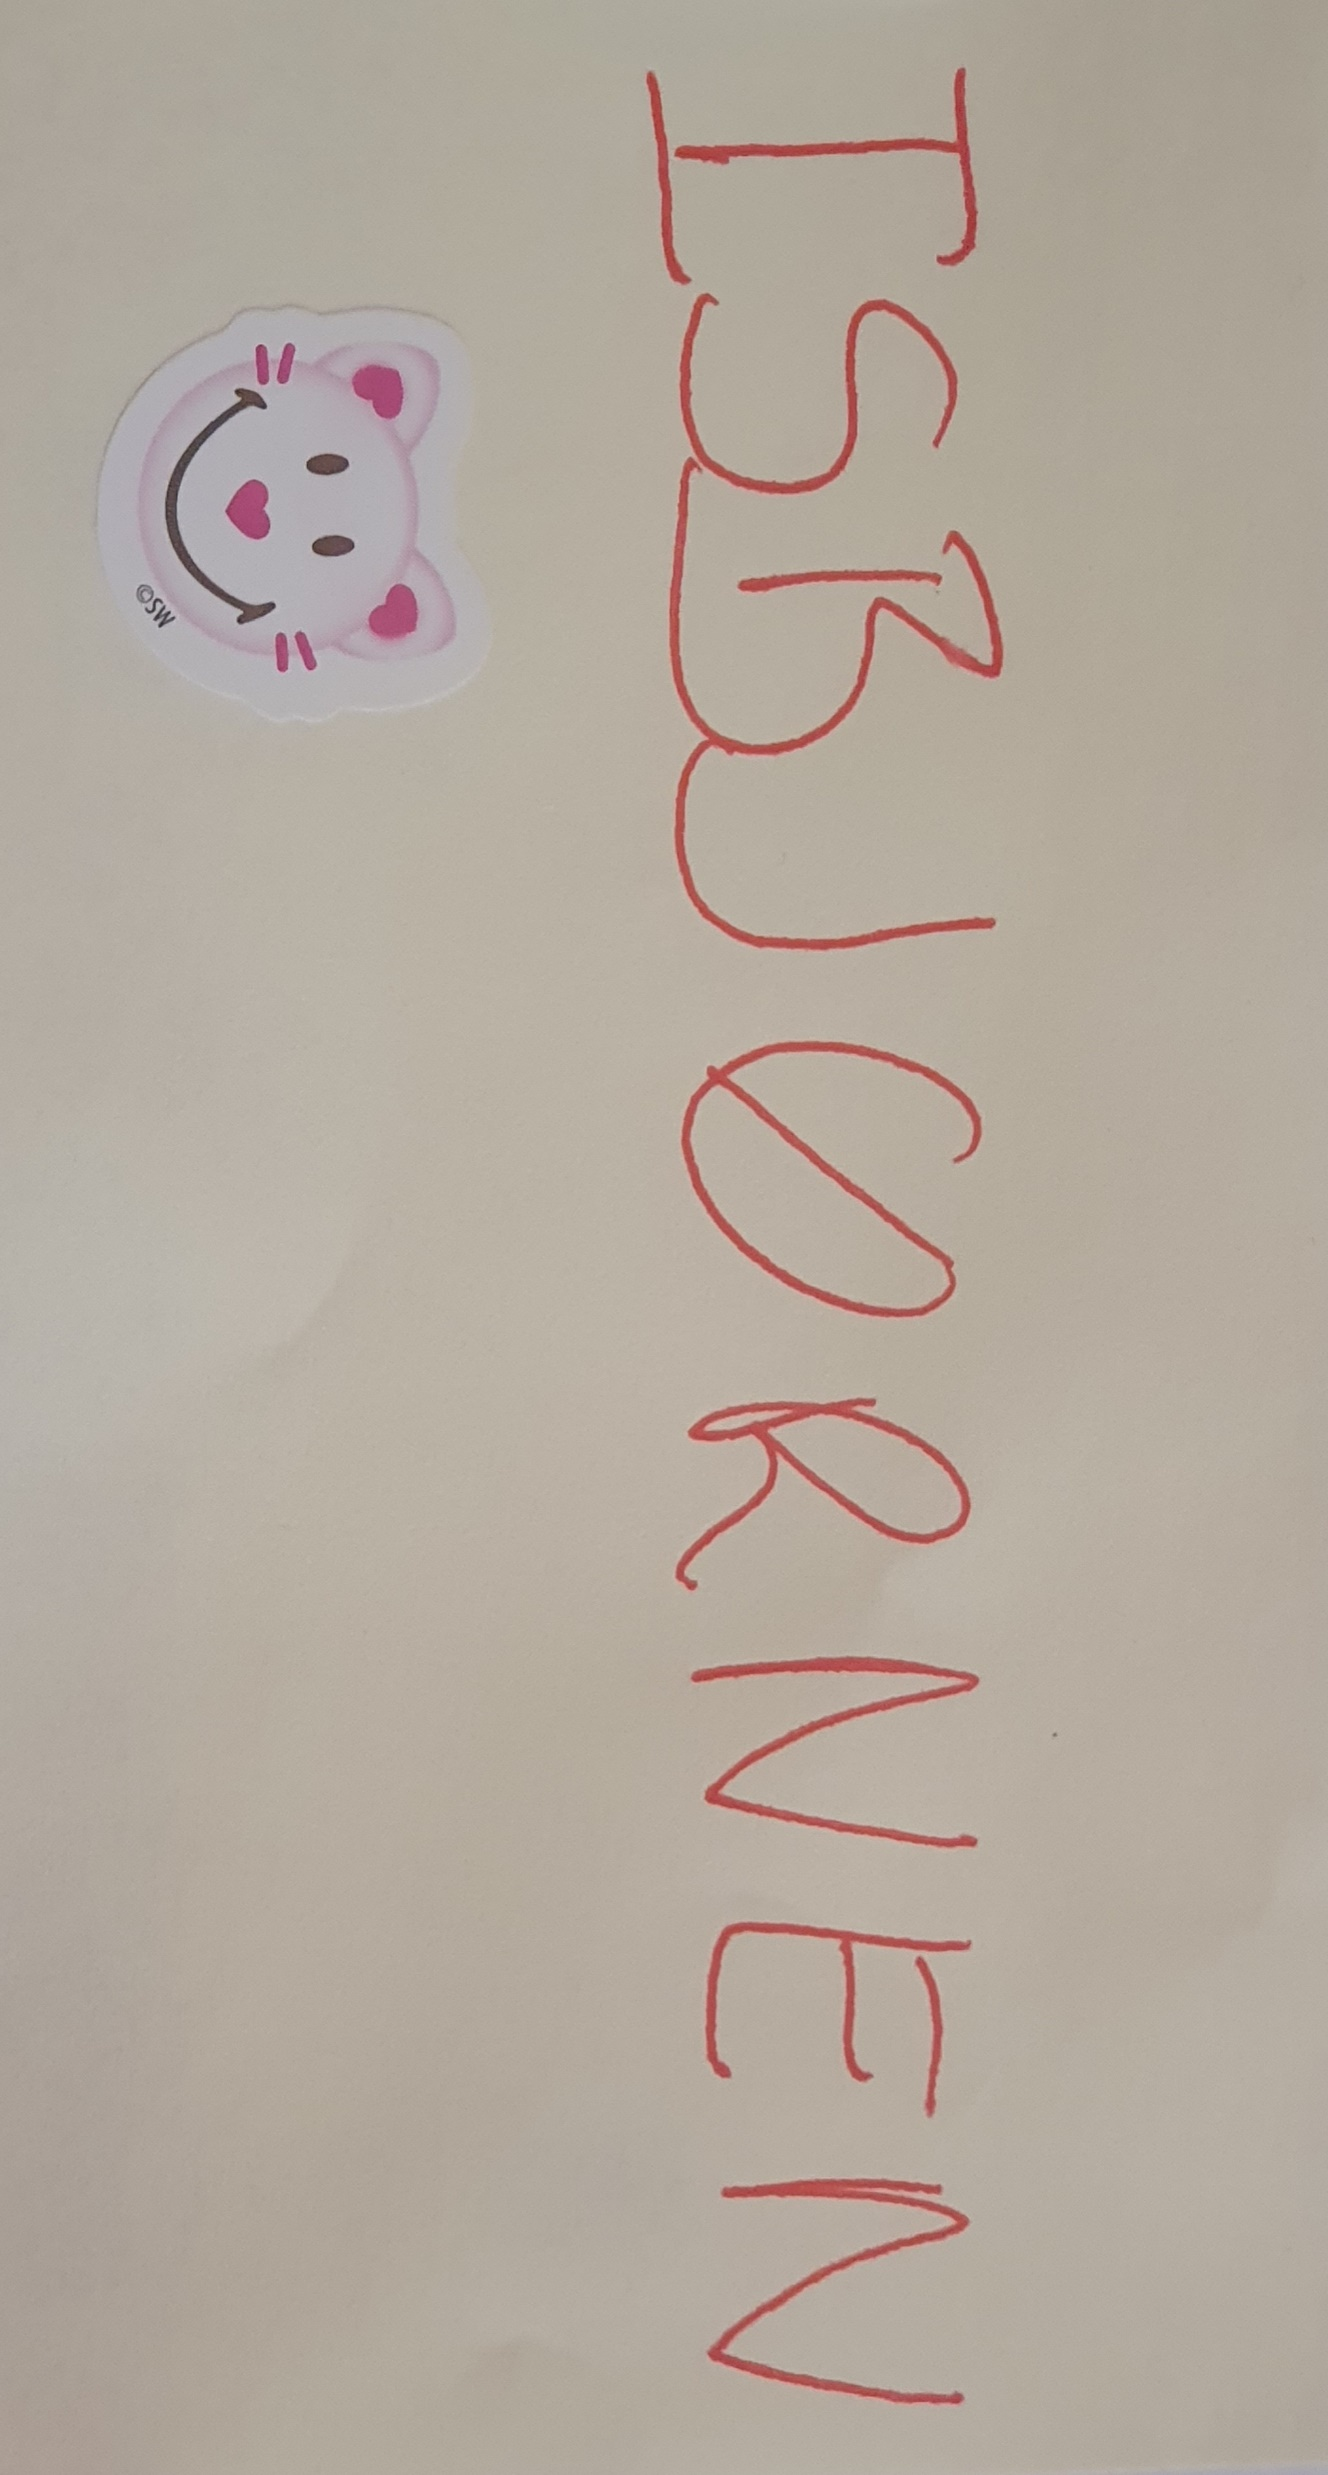 ISBJØRNEN
©SW